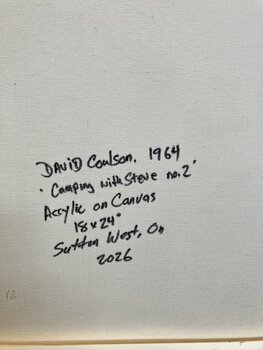 DAVID Coulson. 1964
"Camping with Steve no. 2"
Acrylic on Canvas
18 x 24"
Sutton West, On
2026
12